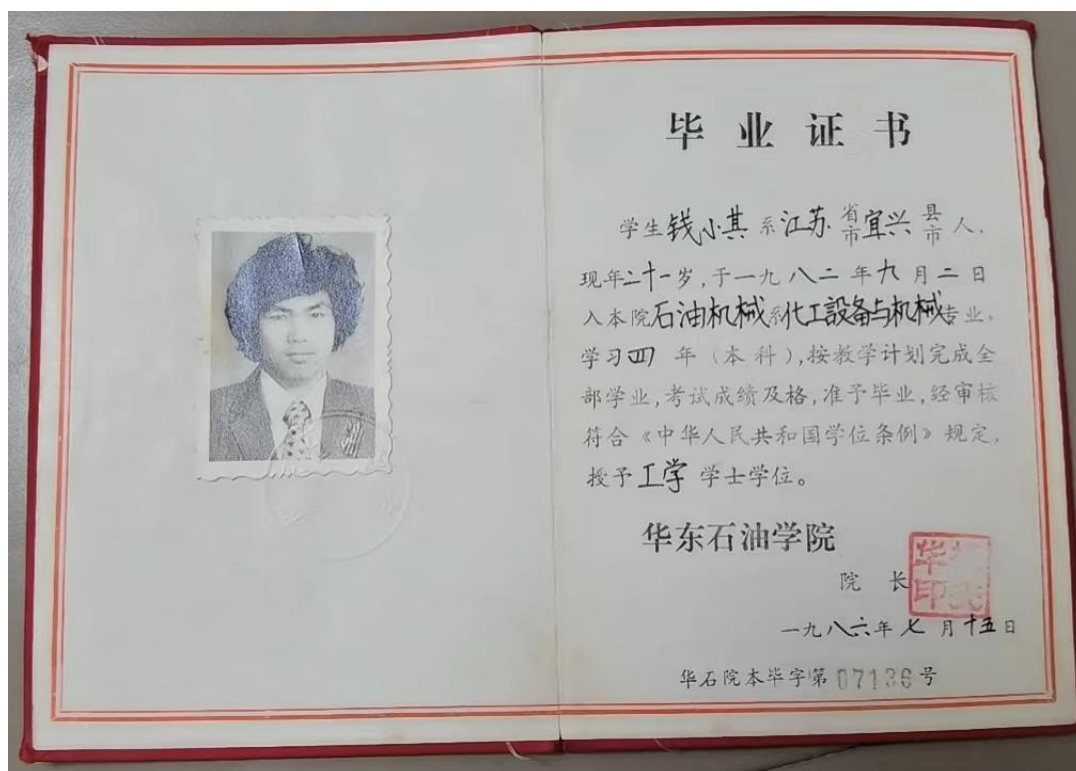 毕业证书
学生钱小其系江苏省市宜兴县市人,
现年二十一岁,于一九八二年九月二日
入本院石油机械系化工設备与机械专业,
学习四年(本科),按教学计划完成全
部学业,考试成绩及格,准予毕业,经审核
符合《中华人民共和国学位条例》规定,
授予工学学士学位。
华东石油学院
院长
华
印
一九八六年七月十五日
华石院本毕字第07136号